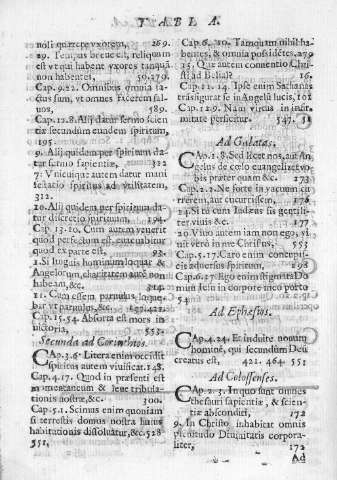 TABLA.
noli quærere vxorem, 269.
29. Tempus breue est, reliquum
est vt qui habent vxores tanquã
non habentes, 50.279.
Cap. 9.22. Omnibus omnia fa-
ctus sum, vt omnes facerem sal-
uos, 589.
Cap. 12.8. Alij datur sermo scien
tiæ secundum eundem spiritum,
195.
9. Alij quidem per spiritum da-
tur sermo sapientiæ, 322
7. Vnicuique autem datur mani
festatio spiritus ad vtilitatem,
312.
10. Alij quidem per spiritum da-
tur discretio spirituum. 194.
Cap. 13.10. Cum autem venerit
quod perfectum est, euacuabitur
quod ex parte est. 93.
1. Si linguis hominum loquar &
Angelorum, charitatem autē non
habeam, &c. 314.
11. Cum essem paruulus, loque-
bar vt paruulus, &c. 15.421.
Cap. 15.54. Absorta est mors in
victoria, 553.
Secunda ad Corinthios.
CAp. 3.6. Litera enim occidit
spiritus autem viuificat. 148.
Cap. 4.17. Quod in præsenti est
momentaneum & leue tribula-
tionis nostræ, &c. 300.
Cap. 5.1. Scimus enim quoniam
si terrestis domus nostra huius
habitationis dissoluatur, &c. 528
551,
Cap. 6.10. Tamquam nihil ha-
bentes, & omnia possidētes. 279
15. Quæ autem conuentio Chri-
sti ad Belial? 16.
Cap. 11.14. Ipse enim Sathanas
trãsfigurat se in Angelũ lucis, 101
Cap. 12.9. Nam virtus in infir-
mitate perficitur. 547. 51
Ad Galatas.
CAp. 1.8. Sed licet nos, aut An
gelus de cœlo euangelizet vo-
bis præter quam &c. 173
Cap. 2.2. Ne forte in vacuum cu
rrerem, aut cucurrissem, 176
14. Si tu cum Iudæus sis gentili-
ter viuis &c. 177
20 Viuo autem iam non ego, vi-
uit verò in me Christus, 553
Cap. 5.17. Caro enim concupis-
cit aduersus spiritum, 298
Cap. 6.17. Ego enim stigmata Do
mini Iesu in corpore meo porto
54
Ad Ephesios.
CAp. 4.24. Et induite nouum
hominē, qui secundum Deũ
creatus est, 421. 464 551
Ad Colossenses.
CAp. 2.3. In quo sunt omnes
thesauri sapientiæ, & scien-
tiæ absconditi, 172
9. In Christo inhabitat omnis
plenitudo Diuinitatis corpora-
liter, 172
Ad